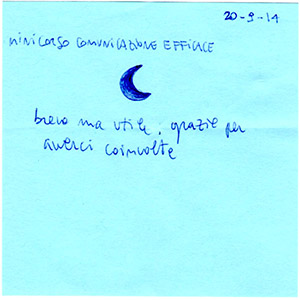 20-9-14
MINICORSO COMUNICAZIONE EFFICACE
breve ma utile: grazie per
averci coinvolte